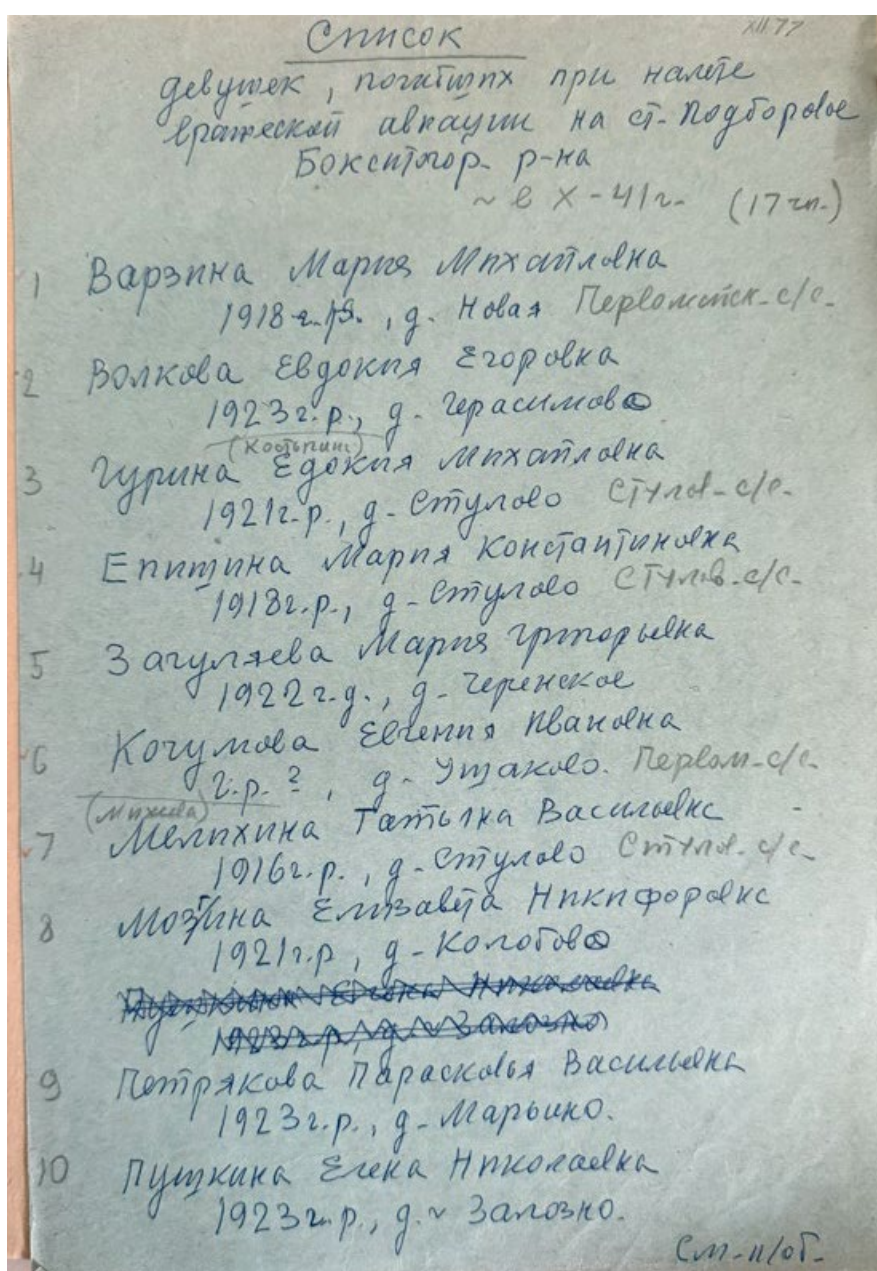 XII 77
Список
девушек, погибших при налёте
вражеской авиации на ст. Подборовье
Бокситогор. р-на
~ в X-41г. (17 чл.)
1 Варзина Мария Михайловна
1918 г.р., д. Новая Первомайск. с/с.
2 Волкова Евдокия Егоровна
1923 г.р., д. Герасимово
(Костыгинс)
3 Гурина Едокия Михайловна
1921 г.р., д. Стулово Стулов. с/с.
4 Епишина Мария Константиновна
1918 г.р., д. Стулово Стулов. с/с.
5 Загуляева Мария Григорьевна
1922 г.р., д. Черенское
6 Кочумова Евгения Ивановна
г.р. ?, д. Ушаково. Первом. с/с.
7 Мелихина Татьяна Васильевна
1916 г.р., д. Стулово Стулов. с/с.
8 Елизавета Никифоровна
1921 г.р, д. Колобово
Пушкина Елена Николаевна
1923 г.р., д. ~ Залозно
9 Петрякова Парасковья Васильевна
1923 г.р., д. Марьино.
10 Пушкина Елена Николаевна
1923 г.р., д. ~ Залозно.
См. н/об.